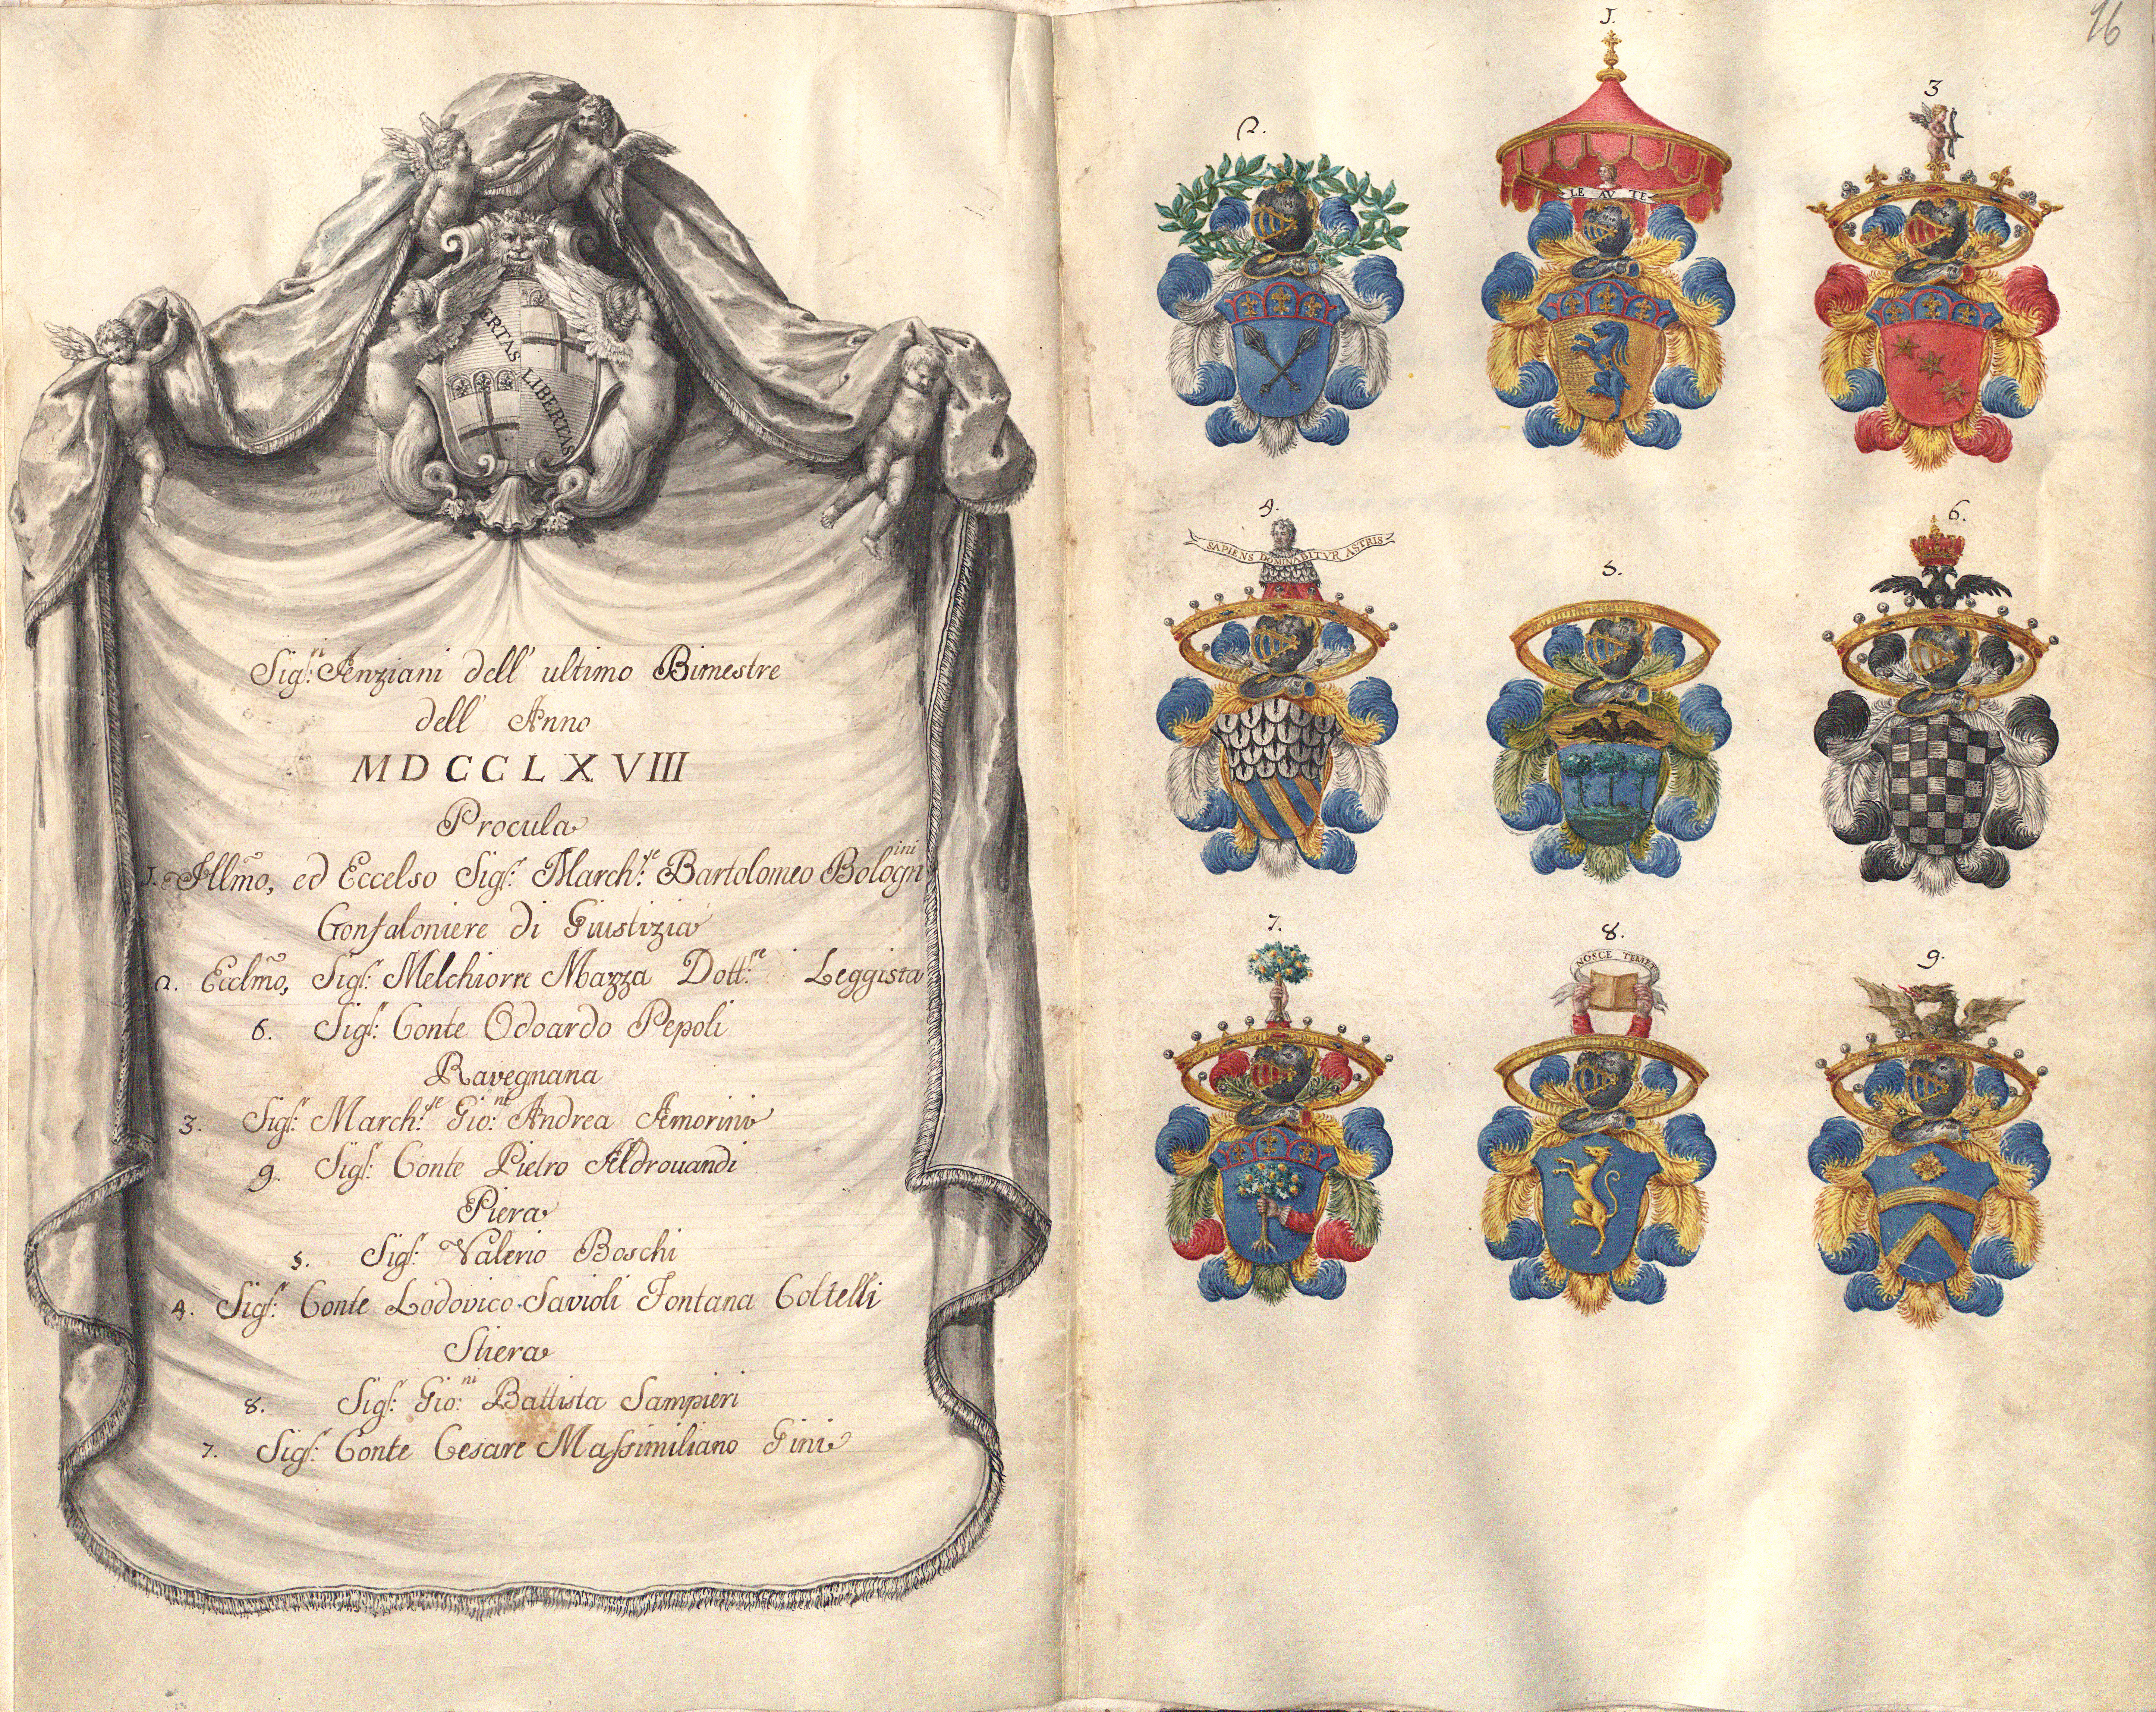 LIBERTAS
LIBERTAS
Sig.ri Anziani dell' ultimo Bimestre
dell' Anno
MDCCLXVIII
Procula
1. Illmo, ed Eccelso Sig.r March.se Bartolomeo Bolognini
Gonfaloniere di Giustizia
2. Ecclmo, Sig.r Melchiorre Mazza Dott.re Leggista
6. Sig.r Conte Odoardo Pepoli
Ravegnana
3. Sig.r March.se Gio.ni Andrea Amorini
9. Sig.r Conte Pietro Aldrouandi
Piera
5. Sig.r Valerio Boschi
4. Sig.r Conte Lodovico Savioli Fontana Coltelli
Stiera
8. Sig.r Gio.ni Battista Sampieri
7. Sig.r Conte Cesare Massimiliano Gini
16
2.
1.
3
LE AV TE
4.
5.
6.
SAPIENS DOMINABITVR ASTRIS
7.
8.
9.
NOSCE TEMET